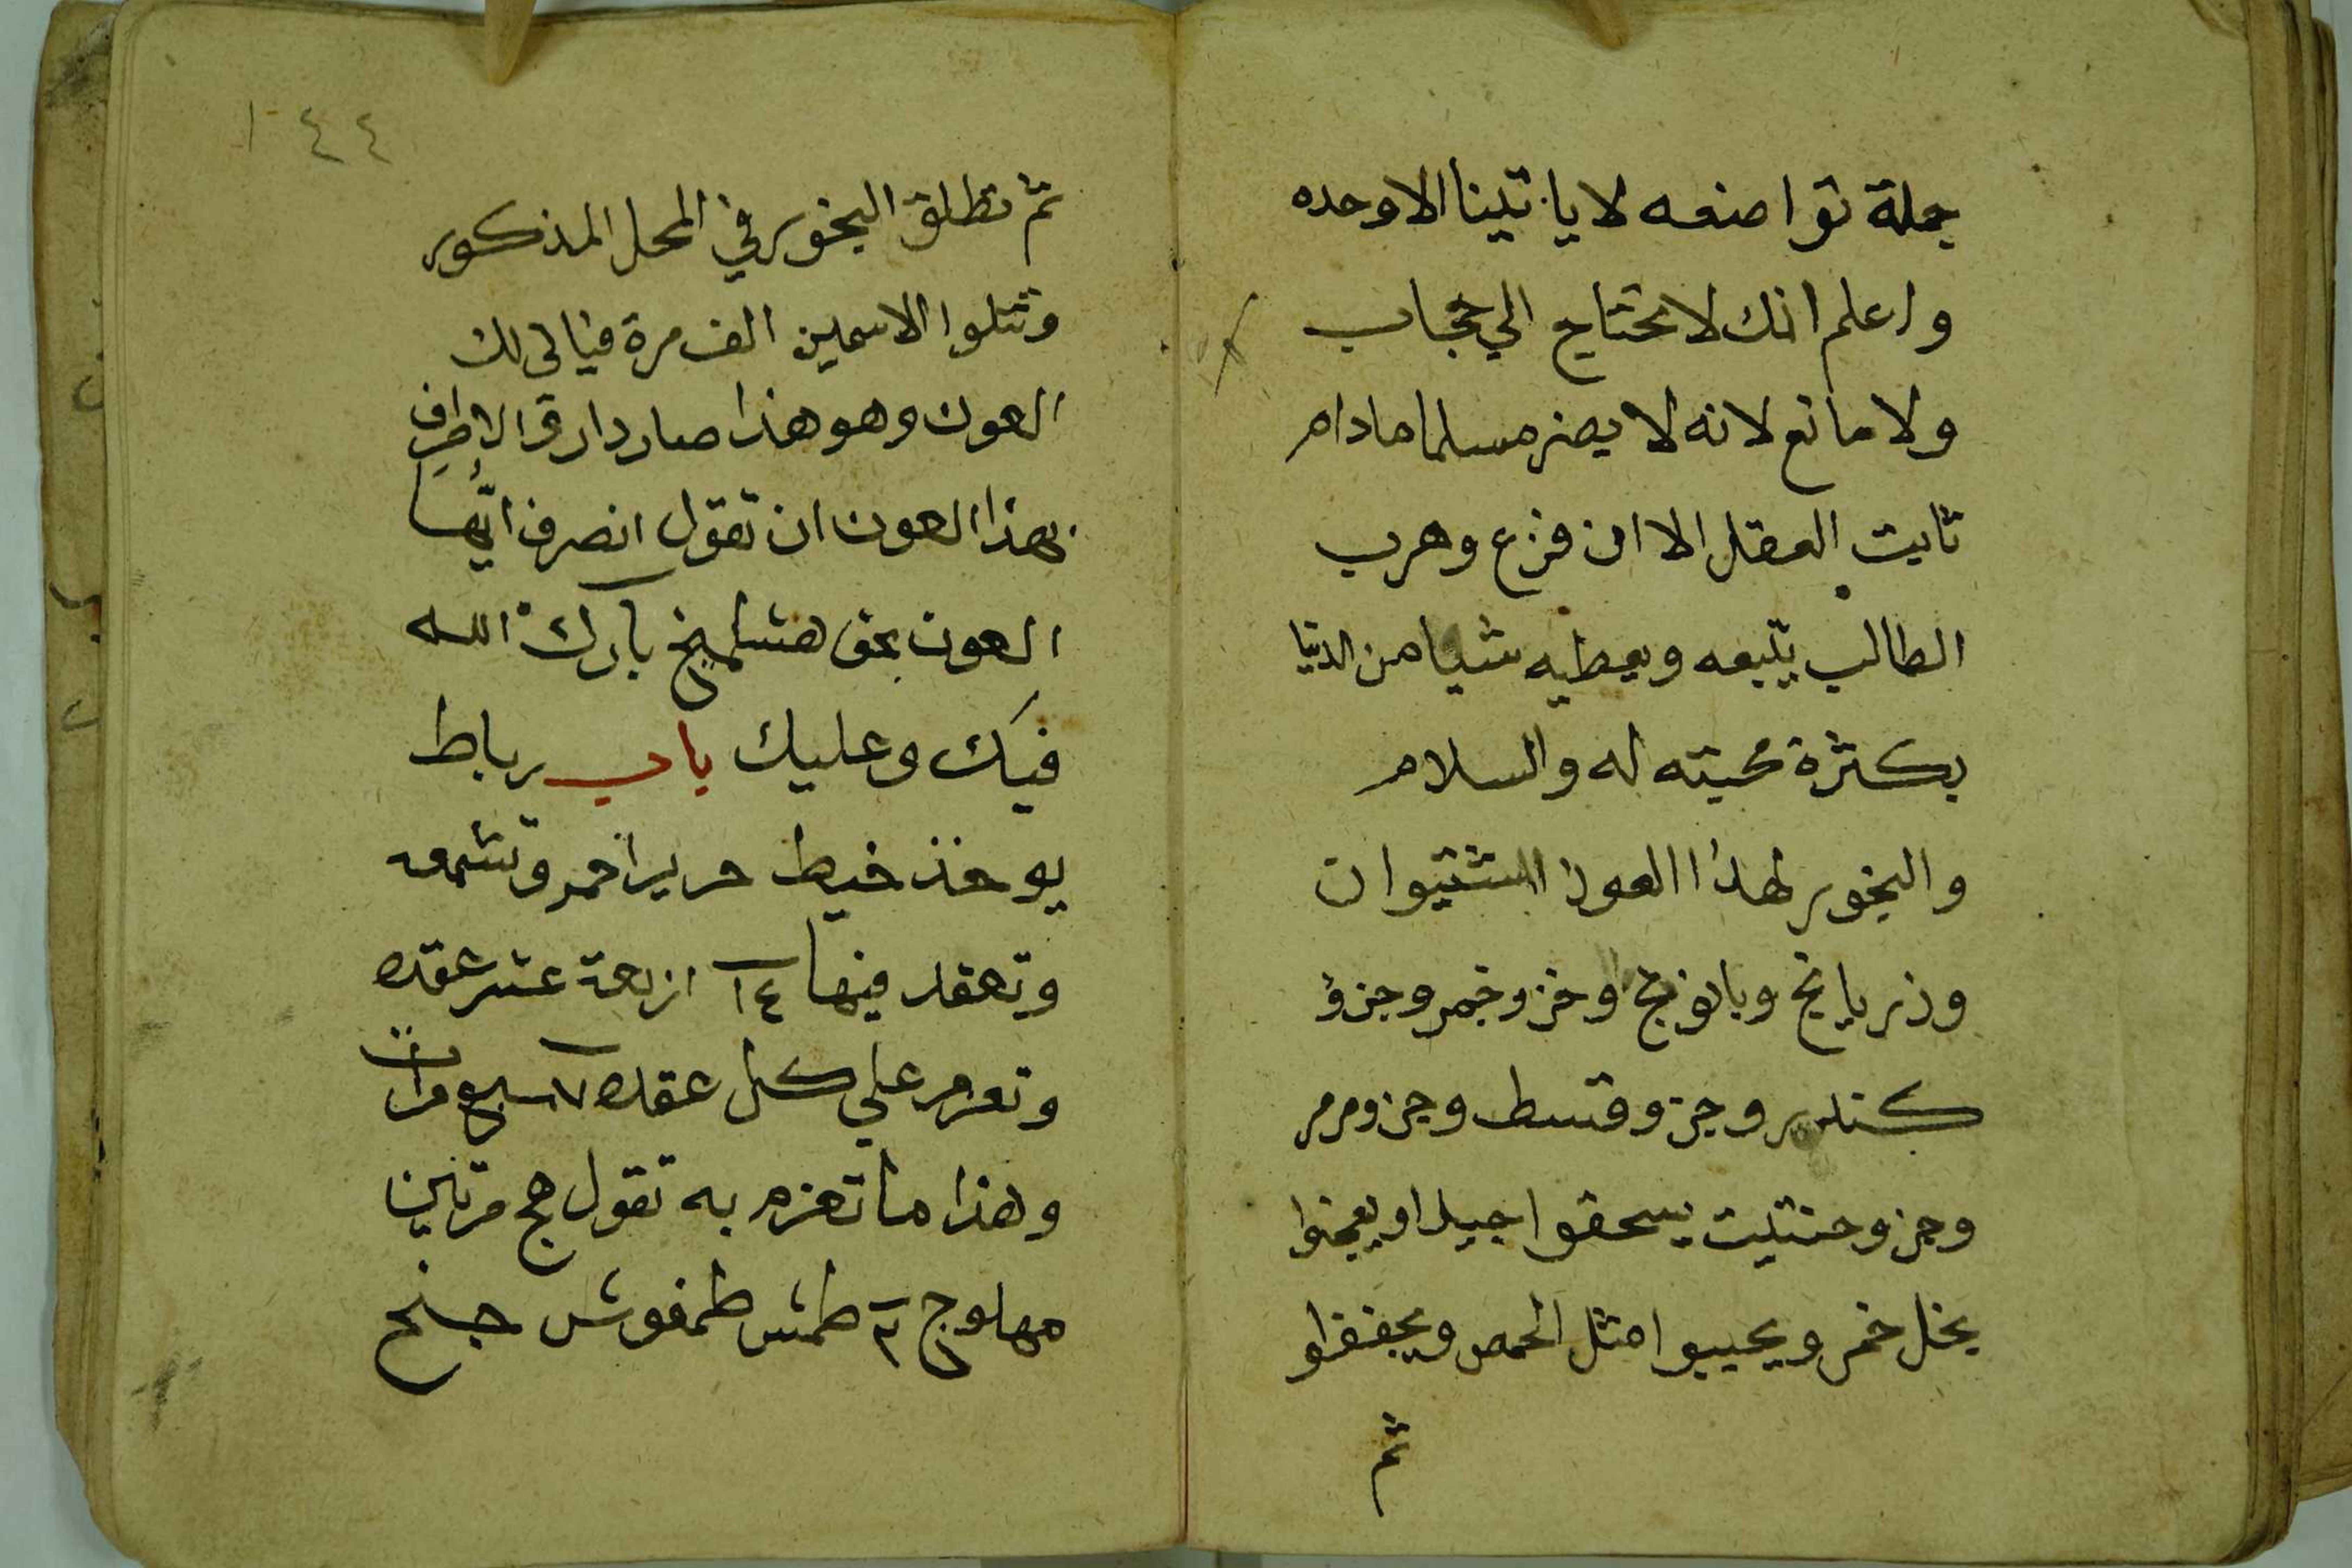 جملة تواضعه لا ياتينا الا وحده
واعلم انك لا تحتاج الي حجاب
ولا مانع لانه لا يضر مسلما مادام
ثابت العقل الا ان فزع وهرب
الطالب يتبعه ويعطيه شيا من الدنيا
بكثرة محبته له والسلام
والبخور لهذا العون
وبابونج وجزو خمر وجزؤ
كندر وجزو قسط وجزو مر
وجزو حنتيت يسحقوا جيدا ويعجنوا
بخل خمر ويحببوا مثل الحمص ويجففوا
ثم
٤٤
ثم تطلق البخور في المحل المذكور
وتتلوا الاسمين الف مرة
العون وهو هذا
بهذا العون ان تقول انصرف ايها
العون بحق بارك الله
فيك وعليك باب رباط
يوخذ خيط حرير احمر وتشمعه
وتعقد فيها ١٤ اربعة عشر عقده
وتعزم علي كل عقده ٧ سبع مرات
وهذا ما تعزم به تقول هج مرتين
مهلوج ٢ طمش طمفوش